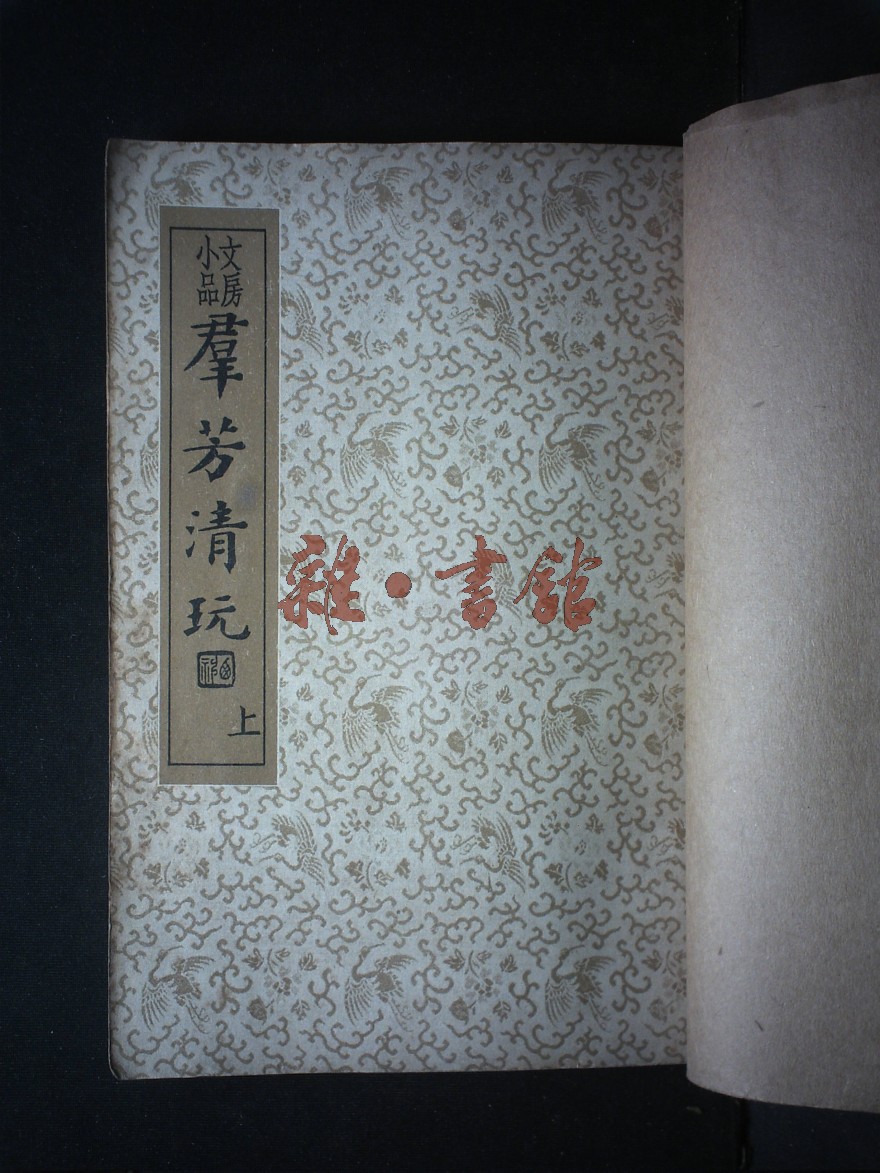 文房
小品
羣芳清玩
上
雜·書館